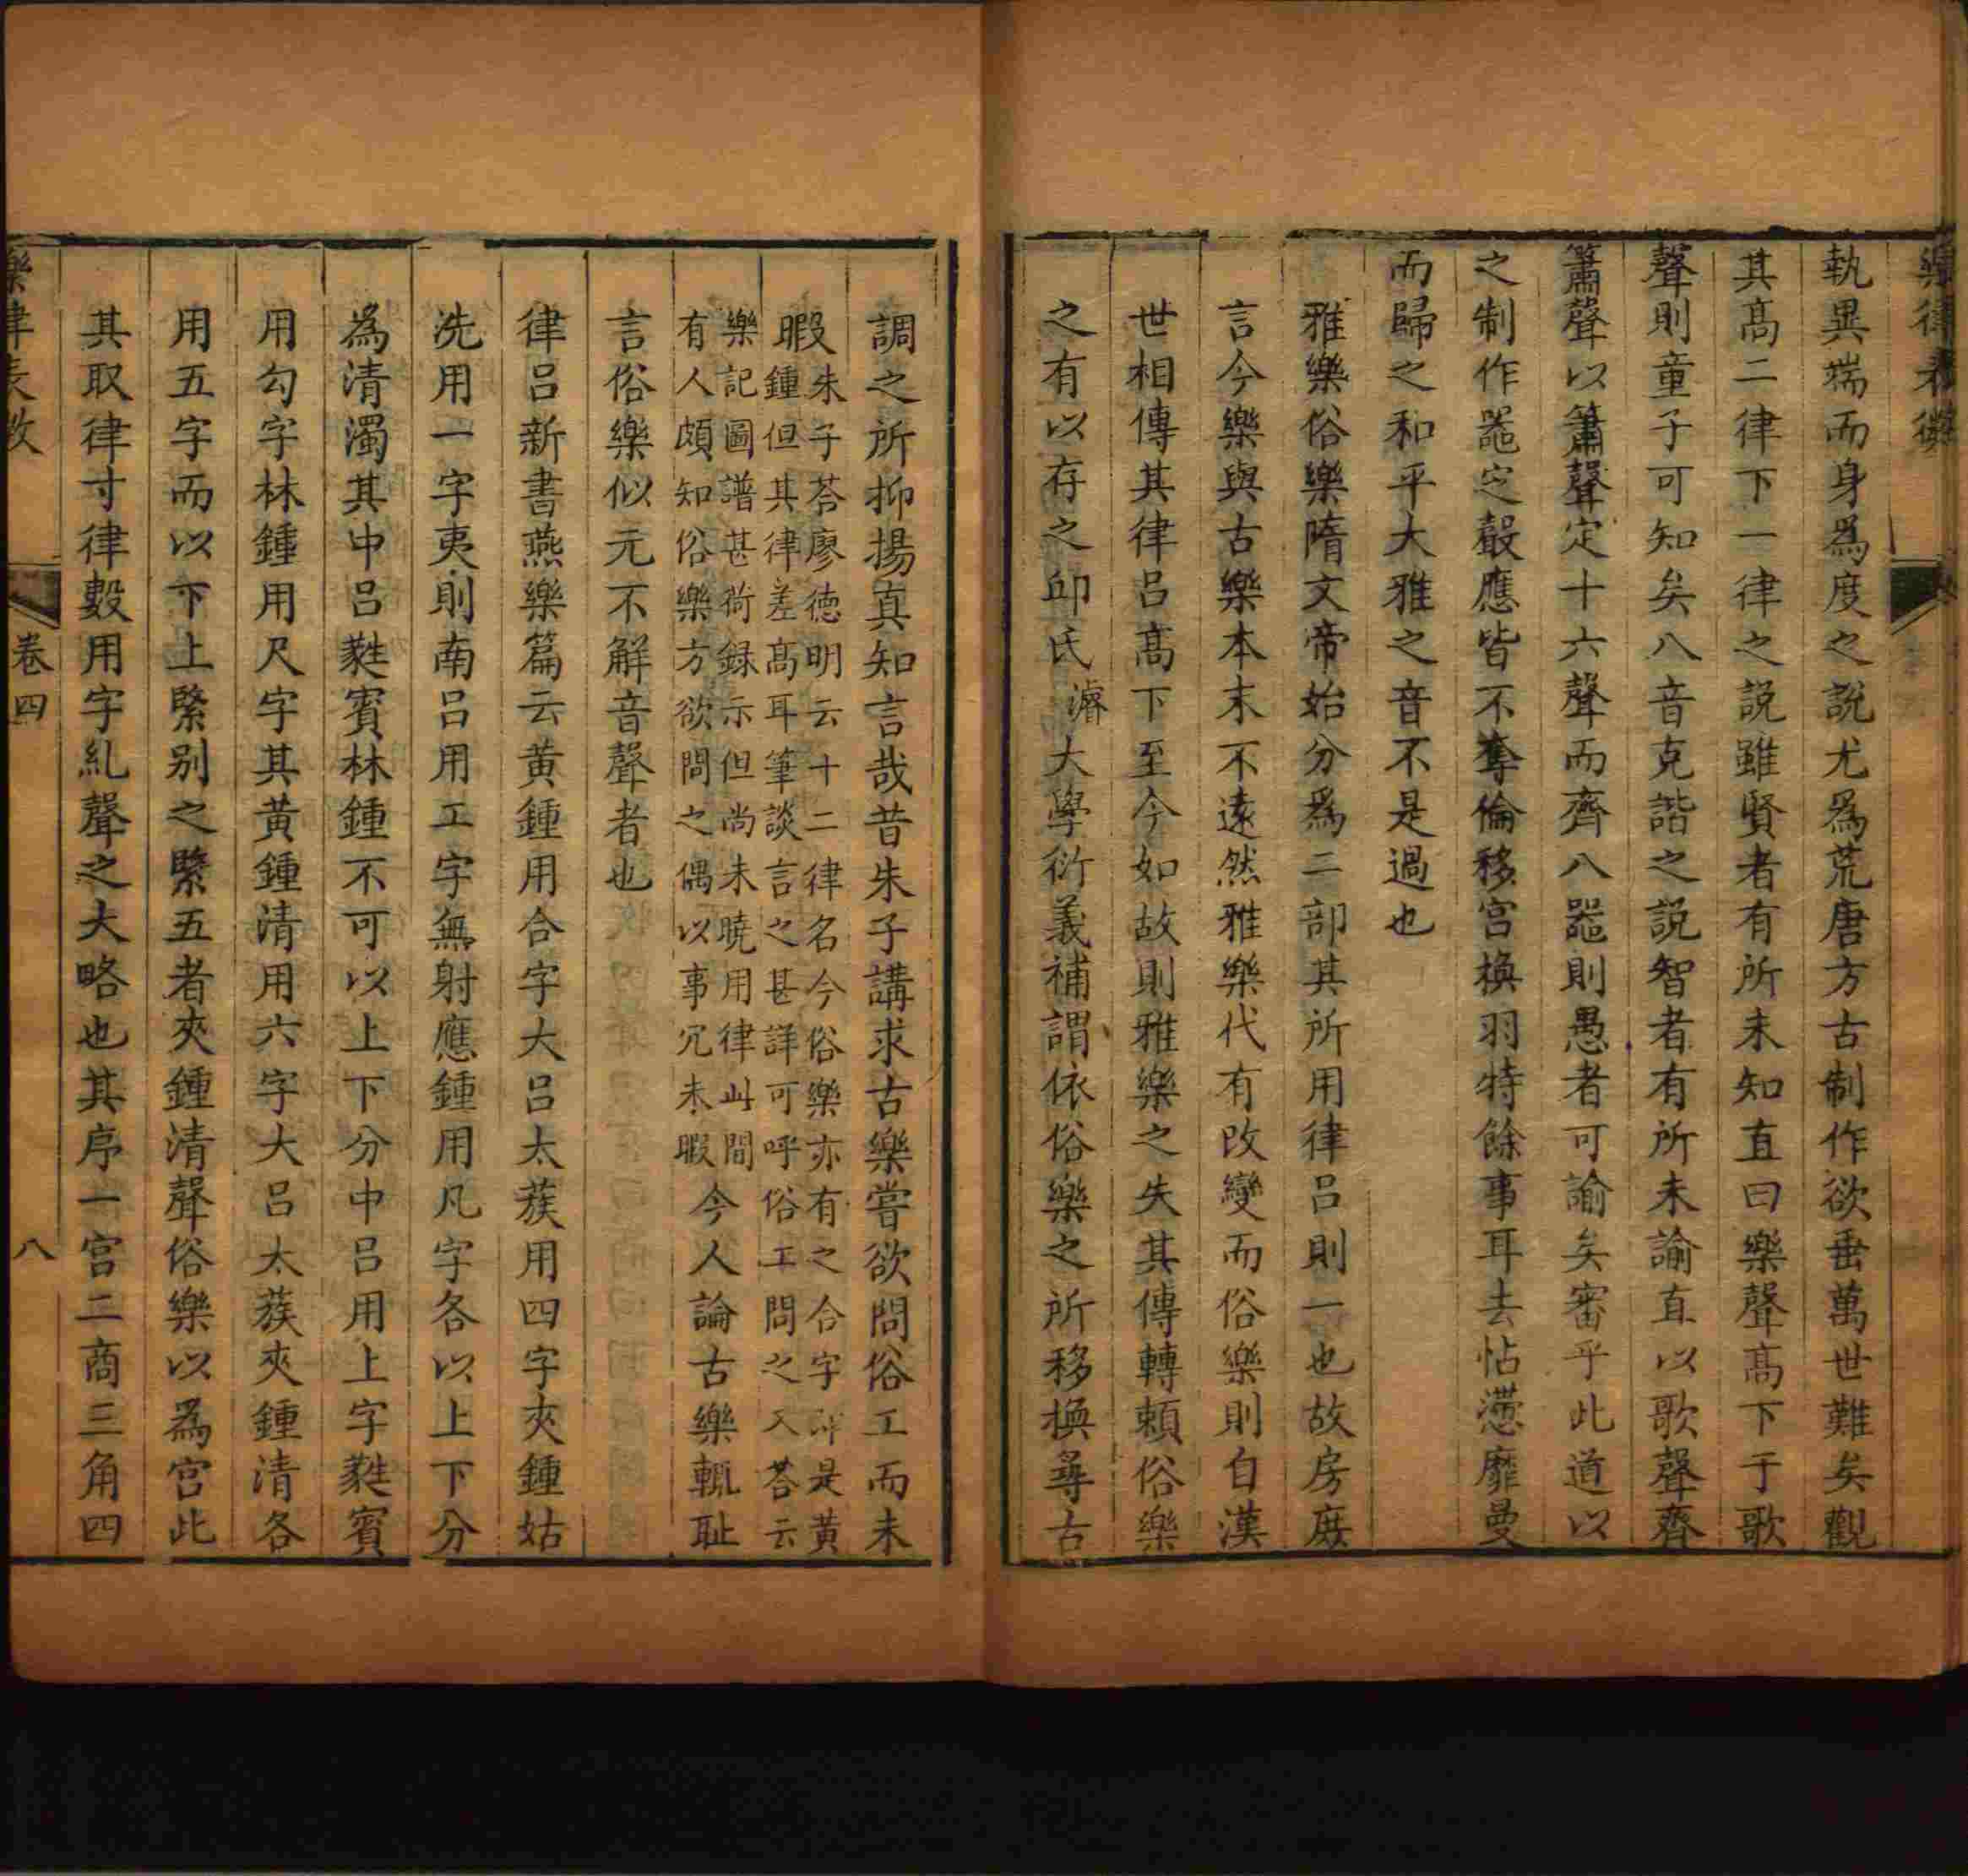 執異端而身爲度之說尤爲荒唐方古制作欲垂萬世難矣觀
其高二律下一律之說雖賢者有所未知直曰樂聲高下于歌
聲則童子可知矣八音克諧之說智者有所未諭直以歌聲齊
簫聲以簫聲定十六聲而齊八器則愚者可諭矣審乎此道以
之制作器定聲應皆不奪倫移宮換羽特餘事耳去怗懘靡曼
而歸之和平大雅之音不是過也
雅樂俗樂隋文帝始分爲二部其所用律呂則一也故房庶
言今樂與古樂本末不遠然雅樂代有改變而俗樂則自漢
世相傳其律呂高下至今如故則雅樂之失其傳轉賴俗樂
之有以存之邱氏濬大學衍義補謂依俗樂之所移換尋古
調之所抑揚真知言哉昔朱子講求古樂嘗欲問俗工而未
暇朱子荅廖德明云十二律名今俗樂亦有之合字即是黃
鍾但其律差高耳筆談言之甚詳可呼俗工問之又荅云
樂記圖譜甚荷録示但尚未曉用律此間
有人頗知俗樂方欲問之偶以事冗未暇今人論古樂輒耻
言俗樂似元不解音聲者也
律呂新書燕樂篇云黄鍾用合字大呂太蔟用四字夾鍾姑
洗用一字夷則南呂用工字無射應鍾用凡字各以上下分
爲清濁其中呂蕤賓林鍾不可以上下分中呂用上字蕤賓
用勾字林鍾用尺字其黄鍾清用六字大呂太蔟夾鍾清各
用五字而以下上緊別之緊五者夾鍾清聲俗樂以爲宮此
其取律寸律數用字紀聲之大略也其序一宮二商三角四
卷四
八